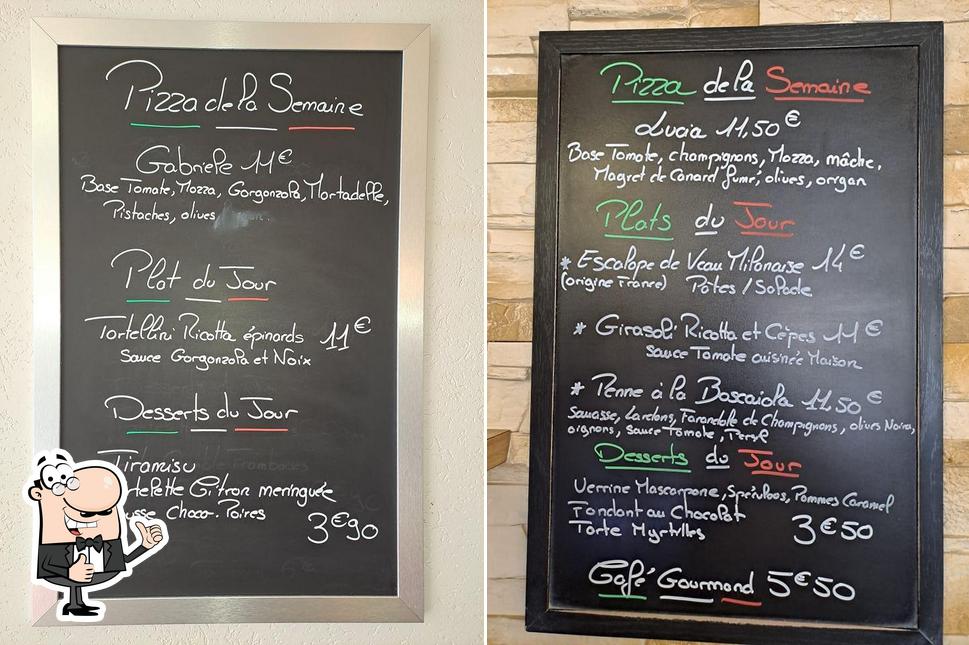 Pizza de la Semaine
Gabriele 11€
Base Tomate, Mozza, Gorgonzola, Mortadelle,
Pistaches, olives
Plat du Jour
Tortellini Ricotta épinards 11€
Sauce Gorgonzola et Noix
Desserts du Jour
Tiramisu
Citron meringuée
Choco-Poires 3€90
Pizza de la Semaine
Lucia 11,50€
Base Tomate, champignons, Mozza, mâche,
Magret de Canard fumé, olives, origan
Plats du Jour
* Escalope de Veau Milanaise 14€
(origine France) Pâtes / Salade
* Girasoli Ricotta et Cèpes 11€
sauce Tomate cuisinée Maison
* Penne à la Boscaiola 11,50€
Saucisse, Lardons, Farandole de Champignons, olives Noires,
oignons, Sauce Tomate, Persil
Desserts du Jour
Verrine Mascarpone, Spéculoos, Pommes Caramel
Fondant au Chocolat
Tarte Myrtilles 3€50
Café Gourmand 5€50